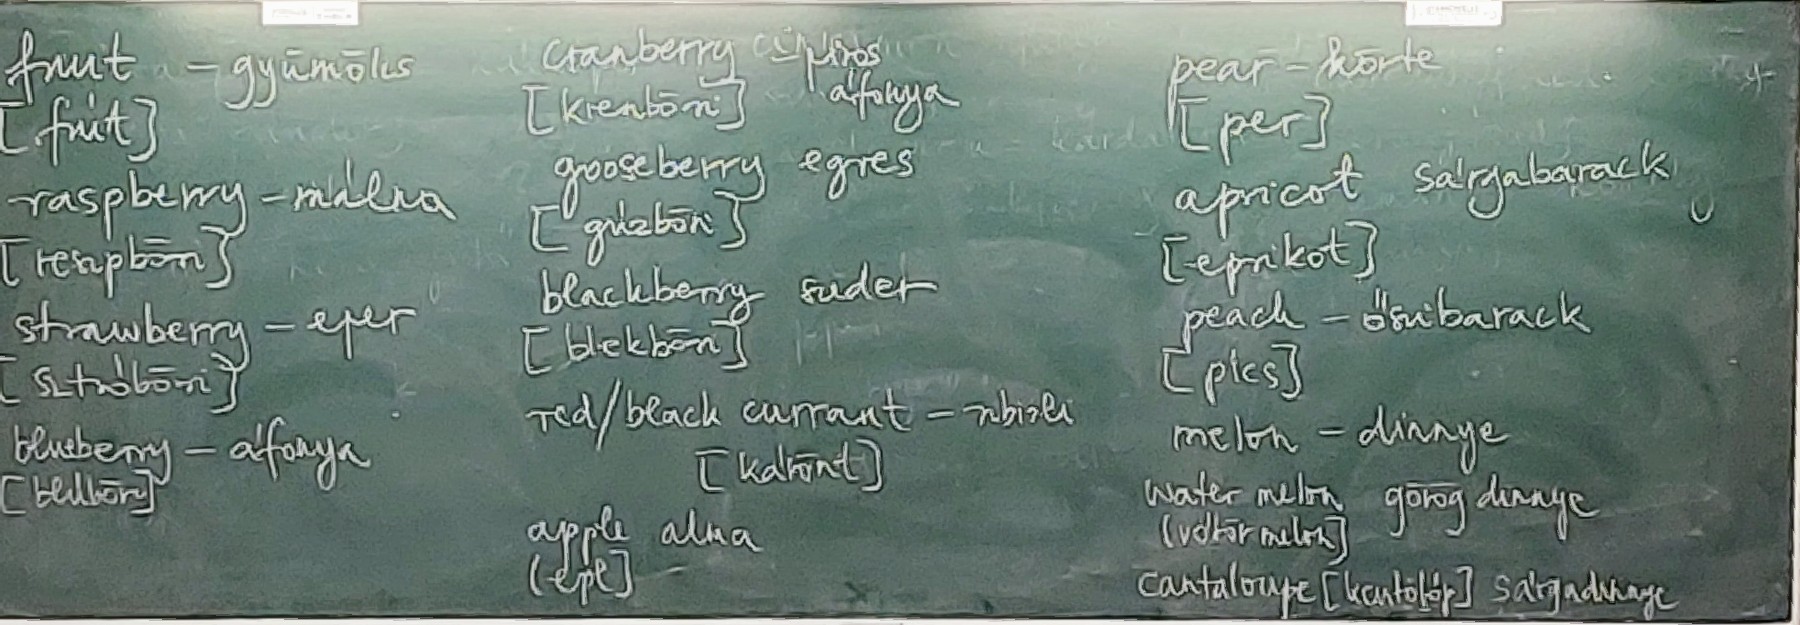 fruit – gyümölcs
[frúit]
raspberry – málna
[reszpböri]
strawberry – eper
[sztróböri]
blueberry – áfonya
[blúböri]
cranberry piros
[krenböri] áfonya
gooseberry egres
[gúzböri]
blackberry szeder
[blekböri]
red/black currant – ribizli
[karönt]
apple alma
(epl]
pear – körte
[per]
apricot sárgabarack
[eprikot]
peach – őszibarack
[pics]
melon – dinnye
water melon görög dinnye
(vótör melon]
cantaloupe [kentölóp] sárgadinnye